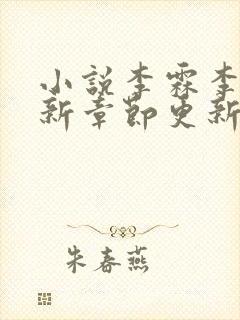 小说李霖李
新章节更新
朱春燕